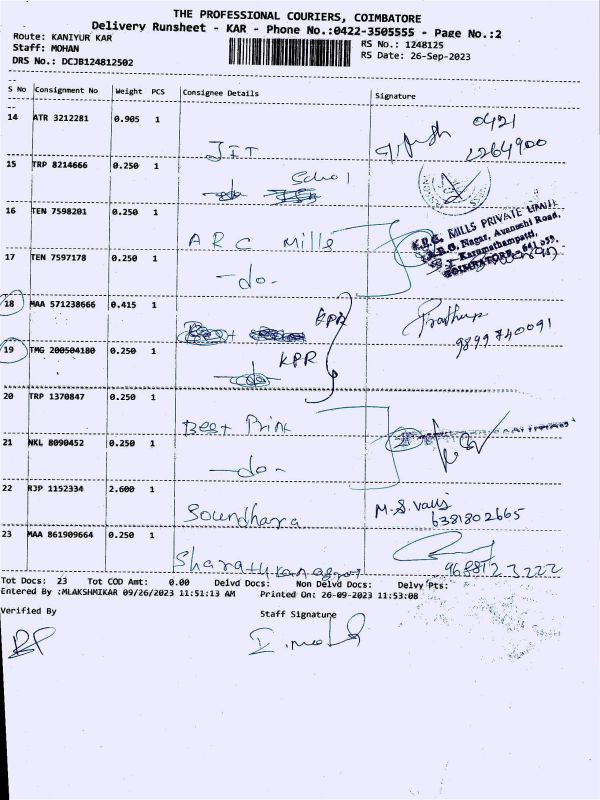 THE PROFESSIONAL COURIERS, COIMBATORE
Delivery Runsheet - KAR - Phone No.:0422-3505555 - Page No.:2
Route: KANIYUR KAR
RS No.: 1248125
Staff: MOHAN
RS Date: 26-Sep-2023
DRS No.: DCJB124812502
S No Consignment No Weight PCS Consignee Details Signature
14 ATR 3212281 0.905 1
0421
JIT
2264900
15 TRP 8214666 0.250 1
School
16 TEN 7598201 0.250 1
ARC Mills
MILLS PRIVATE LIMITED
Nagar, Avanashi Road,
Karumathampatti,
COIMBATORE - 641 659.
17 TEN 7597178 0.250 1
-do-
18 MAA 571238666 0.415 1
KPR
9899740091
19 TMG 200504180 0.250 1
KPR
20 TRP 1370847 0.250 1
Best Print
21 NKL 8090452 0.250 1
-do-
22 RJP 1152334 2.600 1
Soundhara
M.S. Valli
6381802665
23 MAA 861909664 0.250 1
9688123222
Tot Docs: 23 Tot COD Amt: 0.00 Delvd Docs: Non Delvd Docs: Delvy Pts:
Entered By :MLAKSHMIKAR 09/26/2023 11:51:13 AM Printed On: 26-09-2023 11:53:08
Verified By
Staff Signature